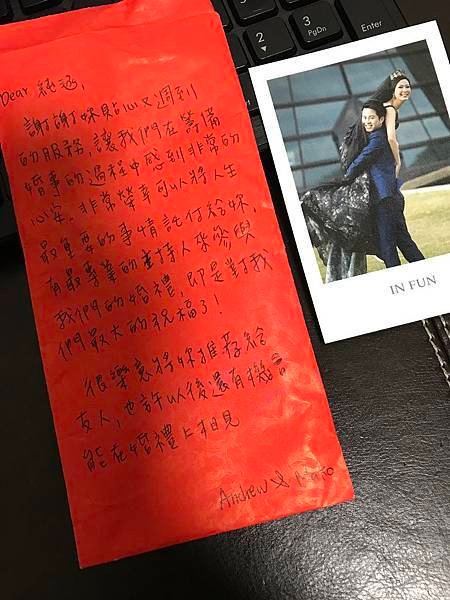 Dear 涵,
謝謝妳貼心又週到
的服務,讓我們在籌備
婚事的過程中感到非常的
心安。非常榮幸可以將人生
最重要的事情託付給妳,
有最專業的主持人來參與
我們的婚禮,即是對我
們最大的祝福了!
很樂意將妳推荐給
友人,也許以後還有機會
能在婚禮上相見
Andrew &
IN FUN
3
PgDn
2
Enter